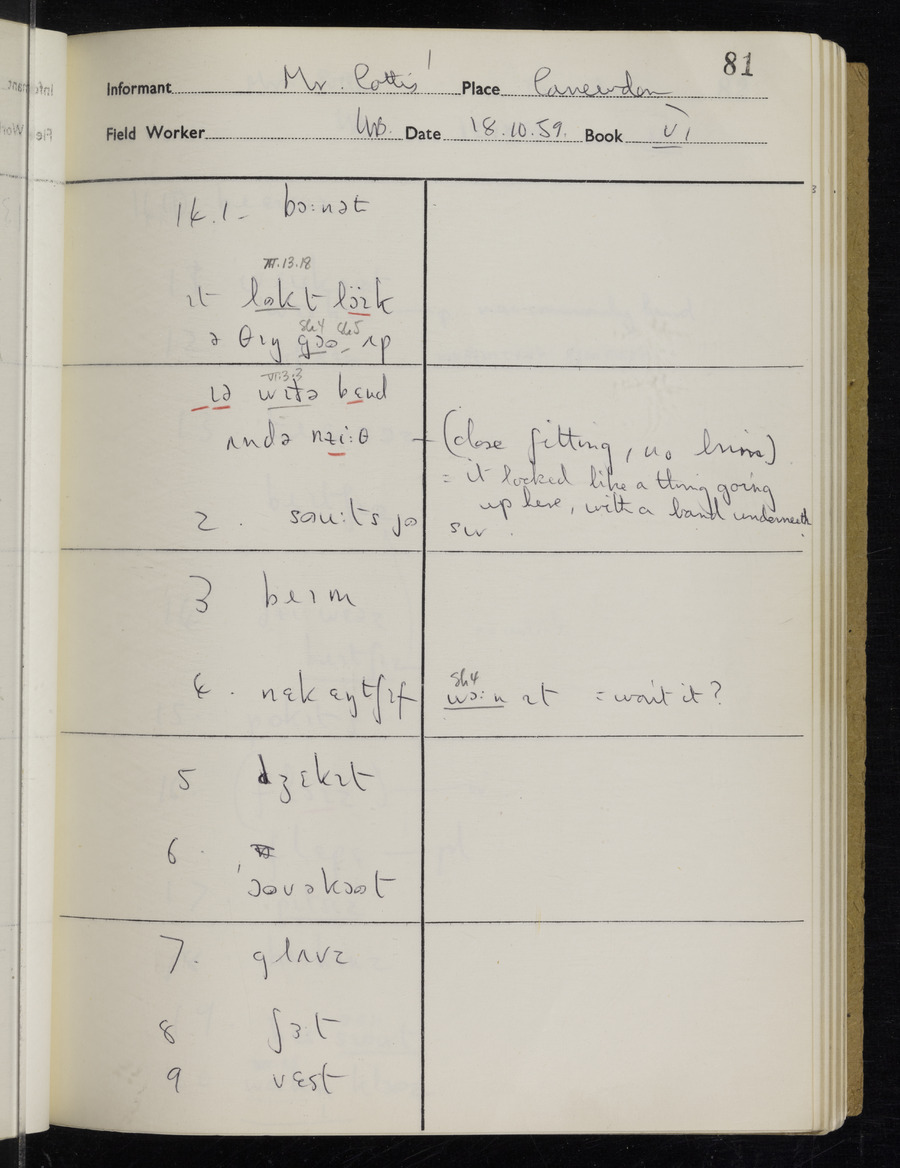 81
Informant Mr. Cottis Place Canewdon
Field Worker Date 18.10.59. Book VI
14.1- bɔːnət
VI.13.18
ɪt lʊkt lɔɪk
sh4 sh5
ə θɪŋ gɔʊ- ʌp
VI:3:3
ɪə wɪðə bɛnd
ʌndə nɪiːθ (close fitting, no brim)
= it looked like a thing going
up here, with a band underneath
2.
3 beɪm
4. nɛkɛŋtʃɪf sh4 wɔːn ɪt = won't it?
5 dʒɛkɪt
6. ˈɔʊvəkɔʊt
7. glʌvz
8 ʃɜt
9 vɛst